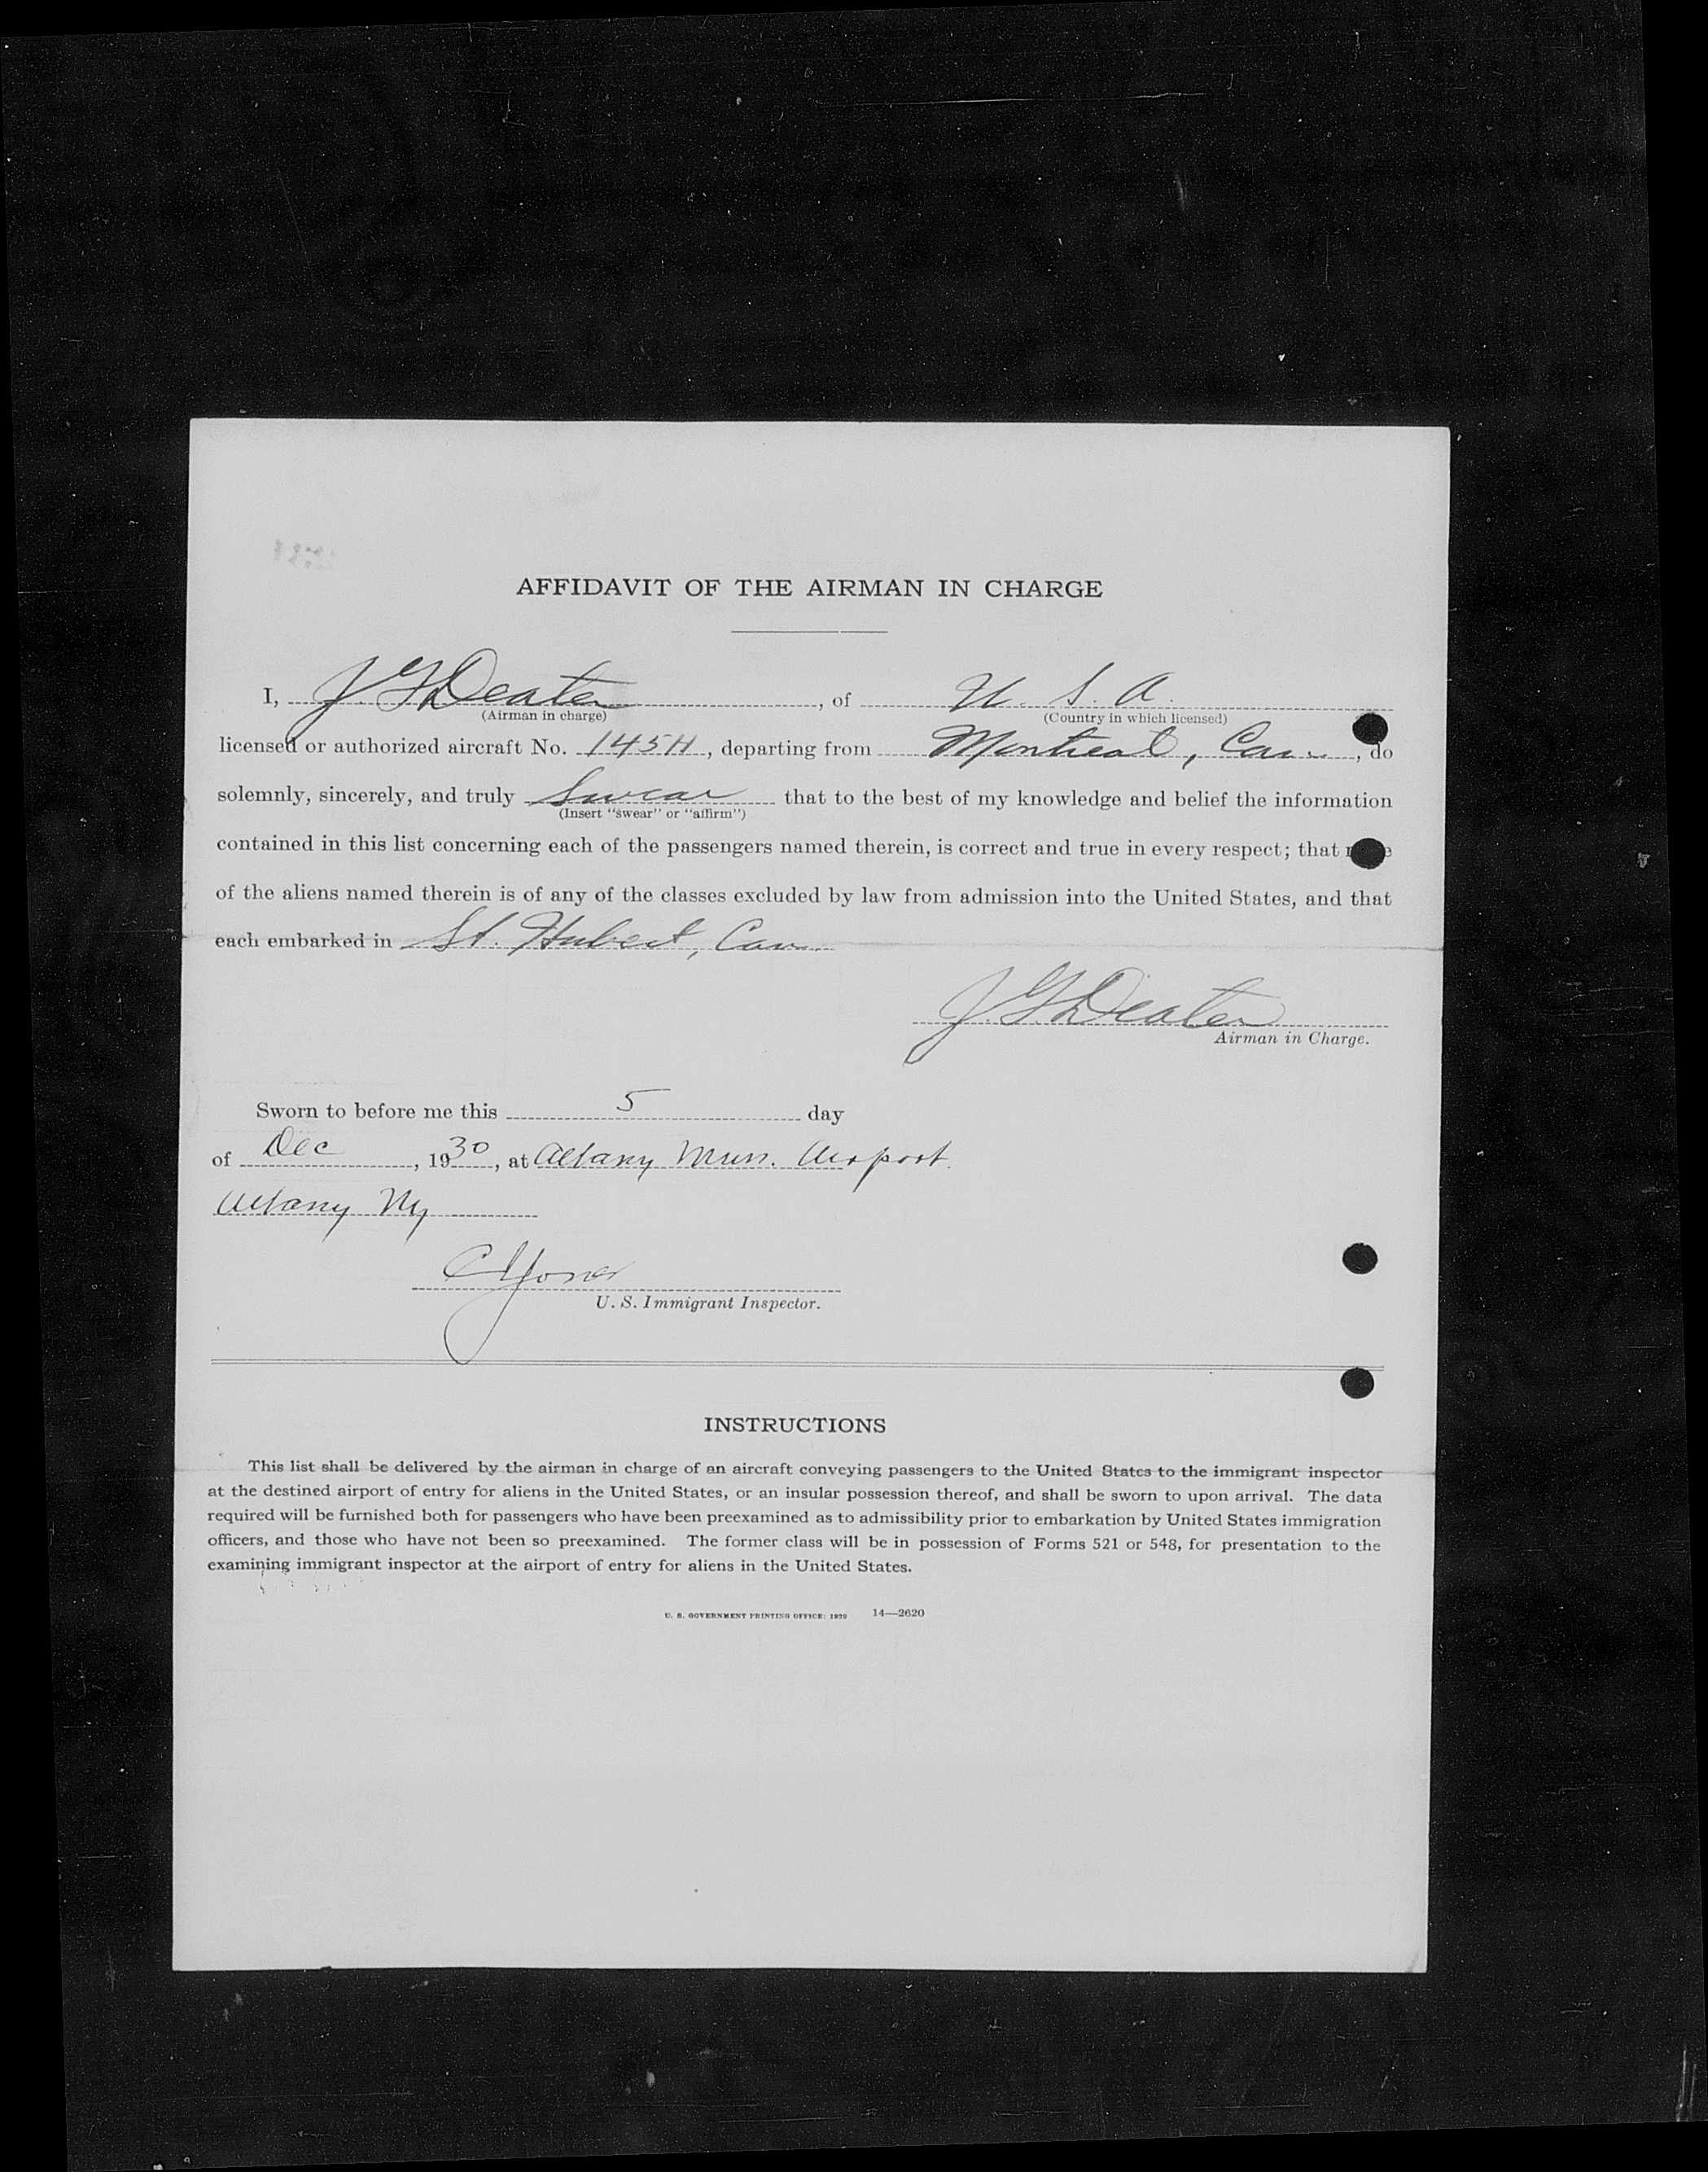 AFFIDAVIT OF THE AIRMAN IN CHARGE
I, J. G. Deater, of U. S. A.
(Airman in charge) (Country in which licensed)
licensed or authorized aircraft No. 145H, departing from Montreal, Can., do
solemnly, sincerely, and truly Swear that to the best of my knowledge and belief the information
(Insert "swear" or "affirm")
contained in this list concerning each of the passengers named therein, is correct and true in every respect; that
of the aliens named therein is of any of the classes excluded by law from admission into the United States, and that
each embarked in St. Hubert, Can.
J. G. Deater
Airman in Charge.
Sworn to before me this 5 day
of Dec, 1930, at Albany Mun. Airport.
Albany Ny
Jones
U. S. Immigrant Inspector.
INSTRUCTIONS
This list shall be delivered by the airman in charge of an aircraft conveying passengers to the United States to the immigrant inspector
at the destined airport of entry for aliens in the United States, or an insular possession thereof, and shall be sworn to upon arrival. The data
required will be furnished both for passengers who have been preexamined as to admissibility prior to embarkation by United States immigration
officers, and those who have not been so preexamined. The former class will be in possession of Forms 521 or 548, for presentation to the
examining immigrant inspector at the airport of entry for aliens in the United States.
U. S. GOVERNMENT PRINTING OFFICE: 1929 14—2620